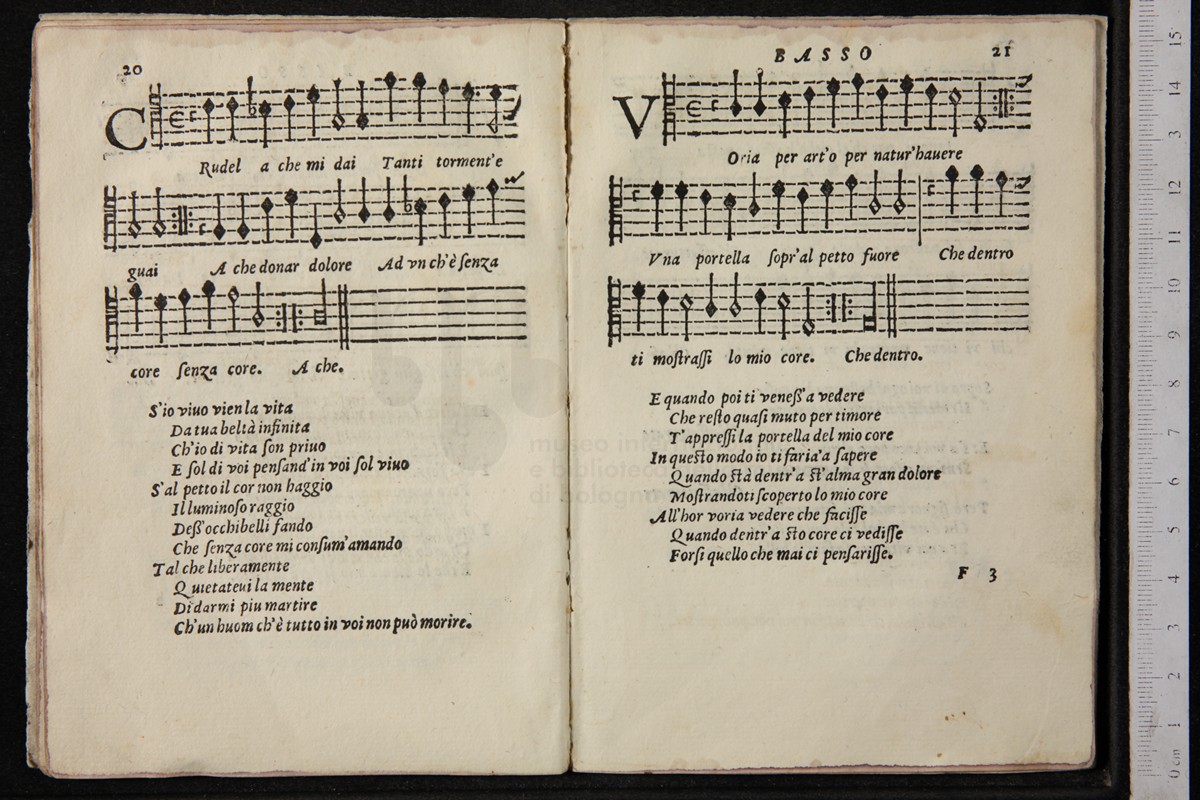 20
C
Rudel a che mi dai Tanti torment'e
guai A che donar dolore Ad vn ch'è ſenza
core ſenza core. A che.
S'io viuo vien la vita
Da tua beltà infinita
Ch'io di vita ſon priuo
E ſol di voi penſand'in voi ſol viuo
S'al petto il cor non haggio
Il luminoſo raggio
Deſſ'occhi belli fando
Che ſenza core mi conſum'amando
Tal che liberamente
Quietateui la mente
Di darmi piu martire
Ch'un huom ch'è tutto in voi non può morire.
BASSO 21
V
Oria per art'o per natur'hauere
Vna portella ſopr'al petto fuore Che dentro
ti moſtraſſi lo mio core. Che dentro.
E quando poi ti veneſſ'a vedere
Che reſto quaſi muto per timore
T'appreſſi la portella del mio core
In queſto modo io ti faria'a ſapere
Quando ſtà dentr'a ſt'alma gran dolore
Moſtrandoti ſcoperto lo mio core
All'hor voria vedere che faciſſe
Quando dentr'a ſto core ci vediſſe
Forſi quello che mai ci penſariſſe.
F 3
museo
e biblioteca
di bologna
15
14
13
12
11
10
9
8
7
6
5
4
3
2
1
0 cm